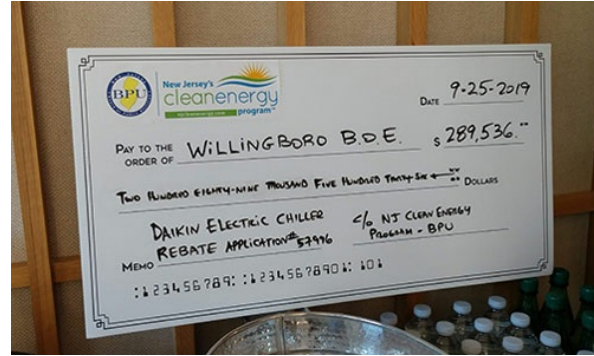 BPU
New Jersey's
cleanenergy
njcleanenergy.com
program™
DATE 9-25-2019
PAY TO THE
ORDER OF WILLINGBORO B.O.E. $ 289,536.00
TWO HUNDRED EIGHTY-NINE THOUSAND FIVE HUNDRED THIRTY-SIX DOLLARS
DAIKIN ELECTRIC CHILLER
REBATE APPLICATION# 57996
MEMO
c/o NJ CLEAN ENERGY
PROGRAM - BPU
⑆123456789⑆ ⑆12345678901⑆ 101